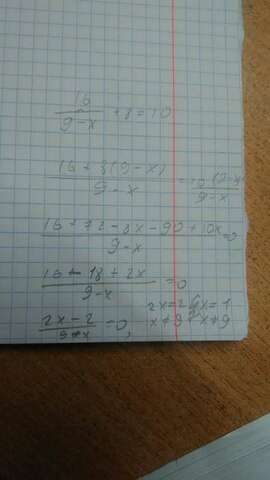 16/(9-x) + 8 = 10
(16 + 8(9-x))/(9-x) = 10(9-x)/(9-x)
(16 + 72 - 8x - 90 + 10x)/(9-x) = 0
(16 - 18 + 2x)/(9-x) = 0
(2x-2)/(9-x) = 0, 2x=2 x=1
x≠9 x≠9